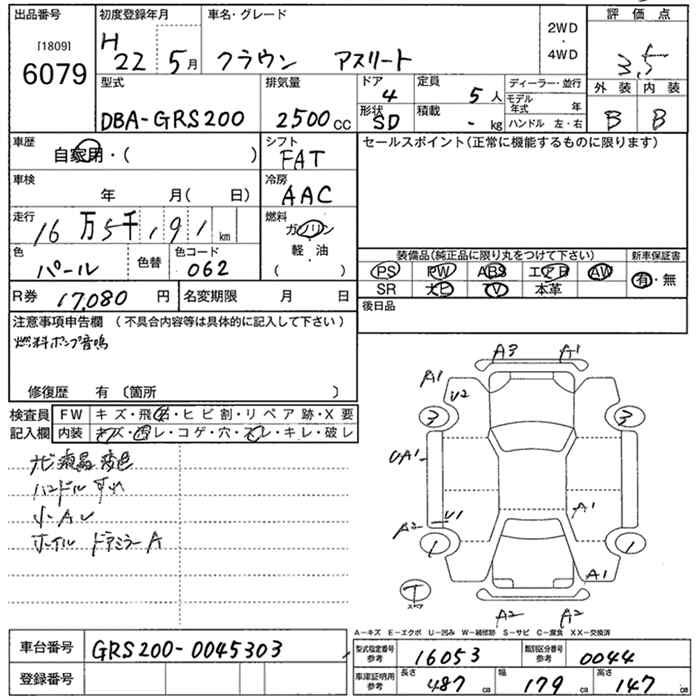 出品番号 初度登録年月 車名・グレード 2WD ・ 4WD 評価点
[1809] 6079
H 22 5月 クラウン アスリート 3.5
外装 内装
B B
型式 排気量 ドア 定員 ディーラー・並行
DBA-GRS200 2500cc 4 5人 モデル年式 年
形状 SD 積載 - kg ハンドル 左・右
車歴 自家用・( ) シフト FAT セールスポイント(正常に機能するものに限ります)
車検 年 月( 日) 冷房 AAC
走行 16万5千191km 燃料 ガソリン
軽・油
( )
色 パール 色替 色コード 062
装備品(純正品に限り丸をつけて下さい) 新車保証書
PS PW ABS エアB AW 有・無
SR ナビ TV 本革
R券 17,080円 名変期限 月 日 後日品
注意事項申告欄 (不具合内容等は具体的に記入して下さい)
燃料ポンプ音鳴
修復歴 有 〔箇所 〕
検査員 FW キズ・飛石・ヒビ割・リペア跡・X要
記入欄 内装 キズ・凹レ・コゲ・穴・スレ・キレ・破レ
ナビ液晶変色
ハンドル スレ
小・A
ホイル ドアミラーA
A3 A1
A1 U2
3 3
UA1
A2 U1 A1
1 1
A1
T
スペア
A2 A2
A-キズ E-エクボ U-凹み W-補修跡 S-サビ C-腐食 XX-交換済
車台番号 GRS200-0045303
登録番号
型式指定番号 参考 16053 類別区分番号 参考 0044
車庫証明用 参考 長さ 487cm 幅 179cm 高さ 147cm